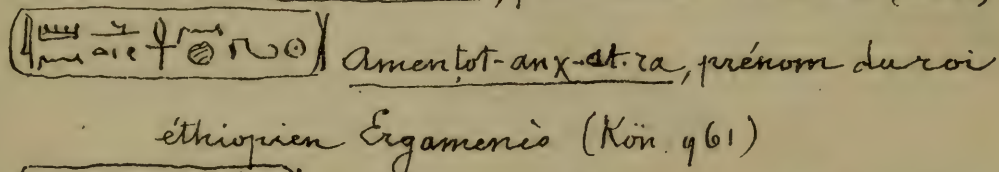 Amentot-anχ-at.ra, prénom du roi
éthiopien Ergamenès (Kön. 961)